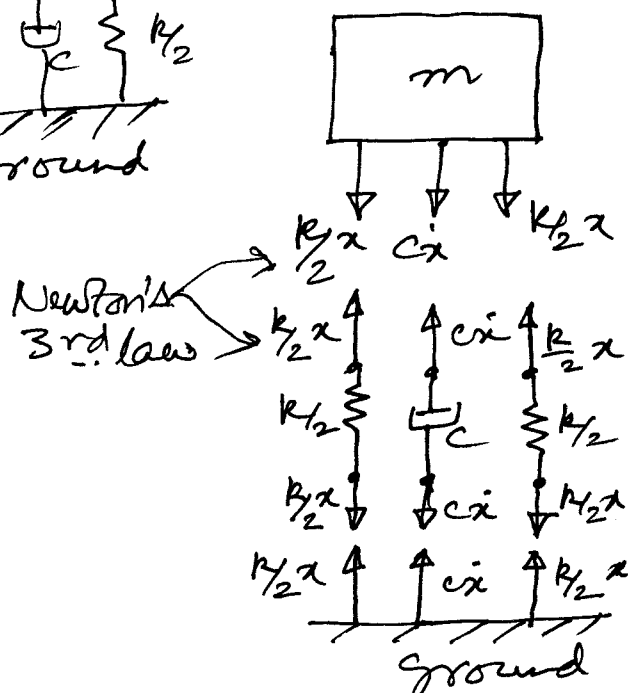 c k/2
ground
m
k/2 x cẋ k/2 x
Newton's
3rd law
k/2 x cẋ k/2 x
k/2 c k/2
k/2 x cẋ k/2 x
k/2 x cẋ k/2 x
ground